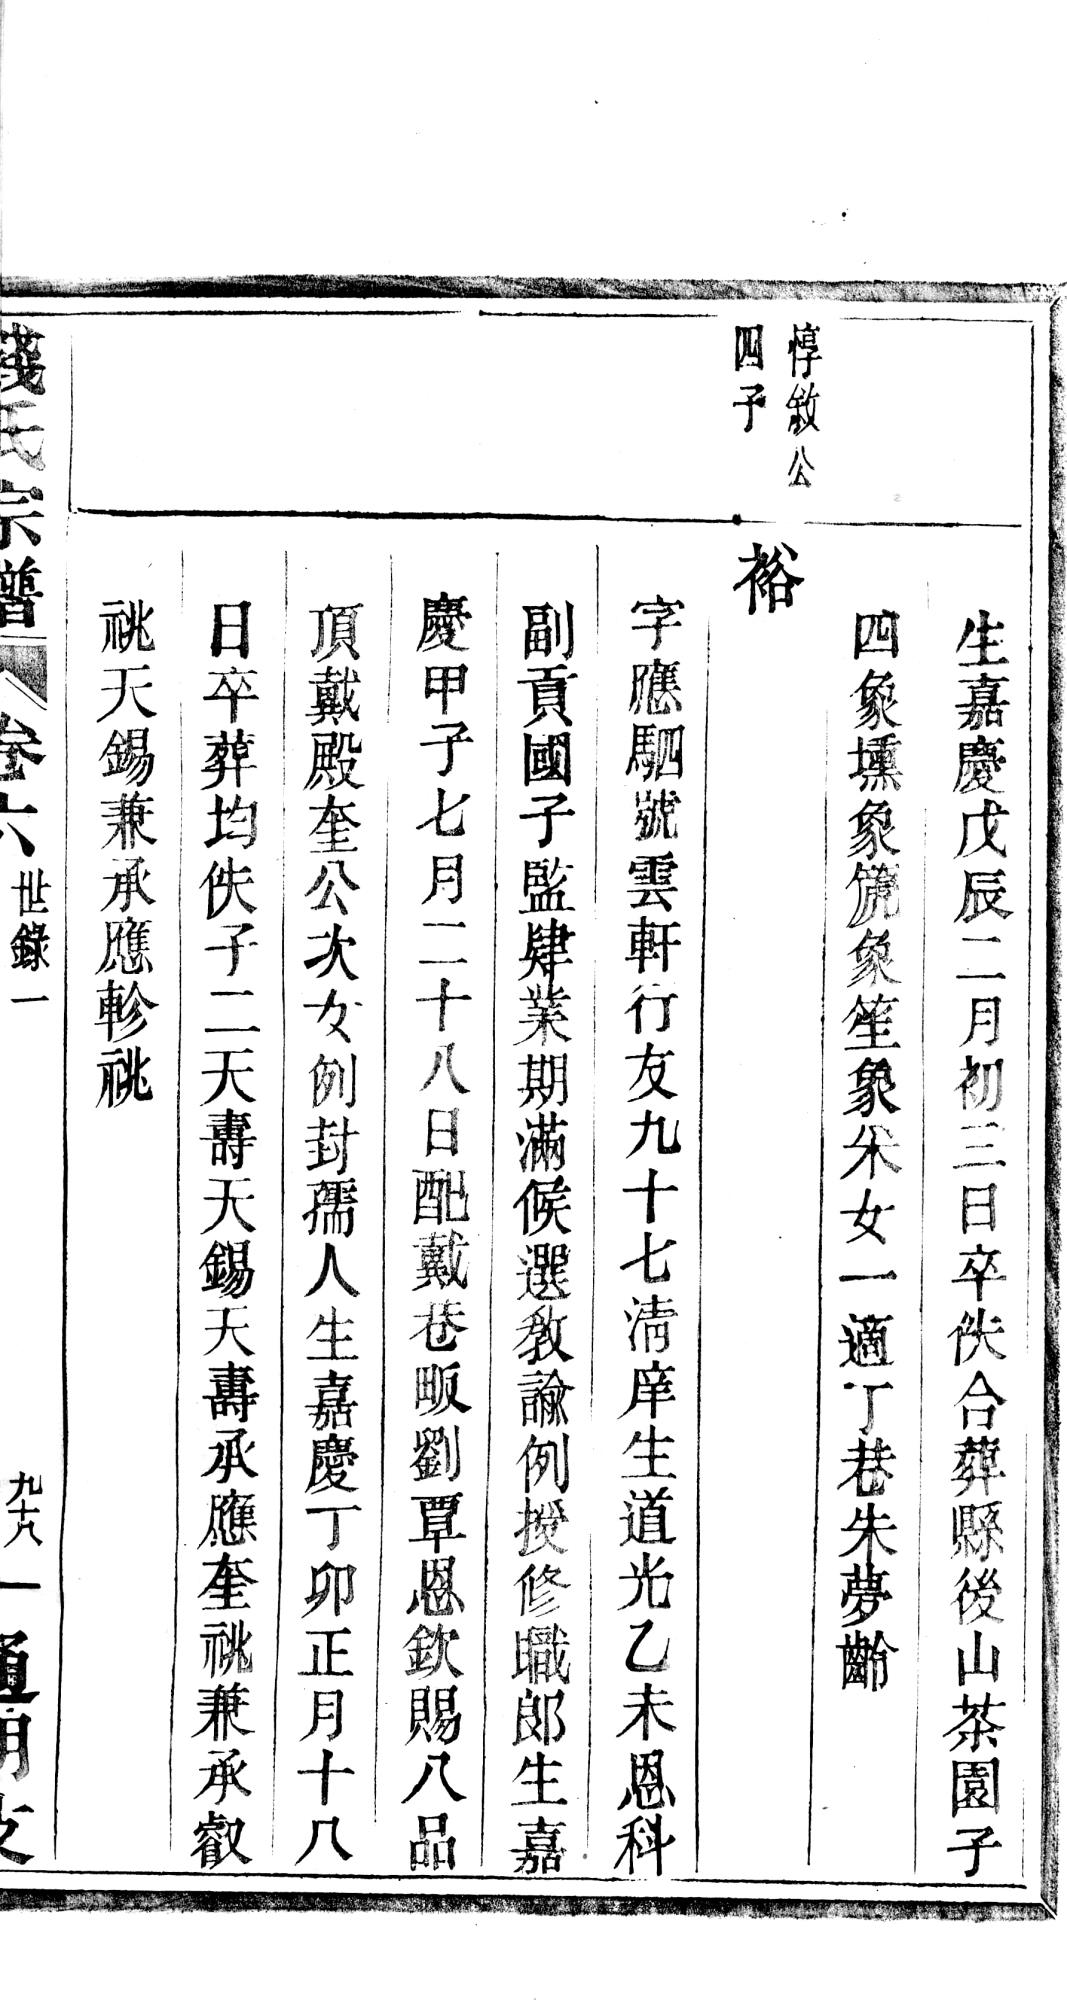 生嘉慶戊辰二月初三日卒佚合葬縣後山茶園子
四象壎象箎象笙象尒女一適丁巷朱夢齡
惇敘公
四子
裕
字應駟號雲軒行友九十七清庠生道光乙未恩科
副貢國子監肄業期滿候選教諭例授修職郎生嘉
慶甲子七月二十八日配戴巷畈劉覃恩欽賜八品
頂戴殿奎公次女例封孺人生嘉慶丁卯正月十八
日卒葬均佚子二天壽天錫天壽承應奎祧兼承叡
祧天錫兼承應軫祧
錢氏宗譜
卷六 世錄一
九十八